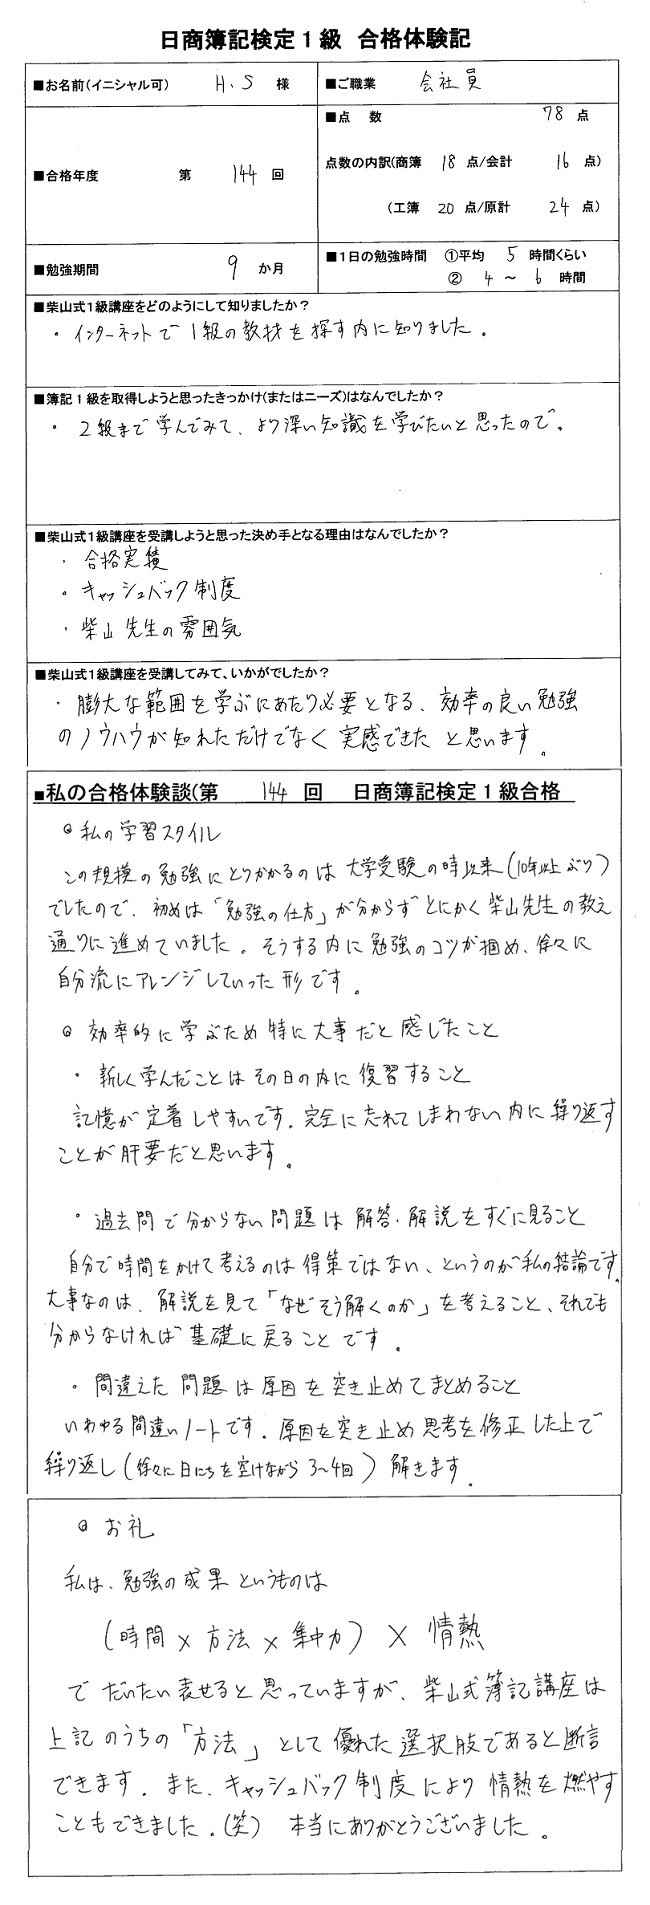 日商簿記検定１級 合格体験記
■お名前(イニシャル可) H.S 様
■ご職業 会社員
■合格年度 第 144 回
■点 数 78 点
点数の内訳(商簿 18 点/会計 16 点)
(工簿 20 点/原計 24 点)
■勉強期間 9 か月
■１日の勉強時間 ①平均 5 時間くらい
② 4 ～ 6 時間
■柴山式１級講座をどのようにして知りましたか？
・インターネットで１級の教材を探す内に知りました。
■簿記１級を取得しようと思ったきっかけ(またはニーズ)はなんでしたか？
・２級まで学んでみて、より深い知識を学びたいと思ったので。
■柴山式1級講座を受講しようと思った決め手となる理由はなんでしたか？
・合格実績
・キャッシュバック制度
・柴山先生の雰囲気
■柴山式1級講座を受講してみて、いかがでしたか？
・膨大な範囲を学ぶにあたり必要となる、効率の良い勉強
のノウハウが知れただけでなく実感できたと思います。
■私の合格体験談(第 144 回 日商簿記検定１級合格
◎私の学習スタイル
この規模の勉強にとりかかるのは大学受験の時以来(10年以上ぶり)
でしたので、初めは「勉強の仕方」が分からずとにかく柴山先生の教え
通りに進めていました。そうする内に勉強のコツが掴め、徐々に
自分流にアレンジしていった形です。
◎効率的に学ぶため特に大事だと感じたこと
・新しく学んだことはその日の内に復習すること
記憶が定着しやすいです。完全に忘れてしまわない内に繰り返す
ことが肝要だと思います。
・過去問で分からない問題は解答・解説をすぐに見ること
自分で時間をかけて考えるのは得策ではない、というのが私の結論です。
大事なのは、解説を見て「なぜそう解くのか」を考えること、それでも
分からなければ基礎に戻ることです。
・間違えた問題は原因を突き止めてまとめること
いわゆる間違いノートです。原因を突き止め思考を修正した上で
繰り返し(徐々に日にちを空けながら3～4回)解きます。
◎お礼
私は、勉強の成果というものは
(時間×方法×集中力)×情熱
でだいたい表せると思っていますが、柴山式簿記講座は
上記のうちの「方法」として優れた選択肢であると断言
できます。また、キャッシュバック制度により情熱を燃やす
こともできました。(笑) 本当にありがとうございました。